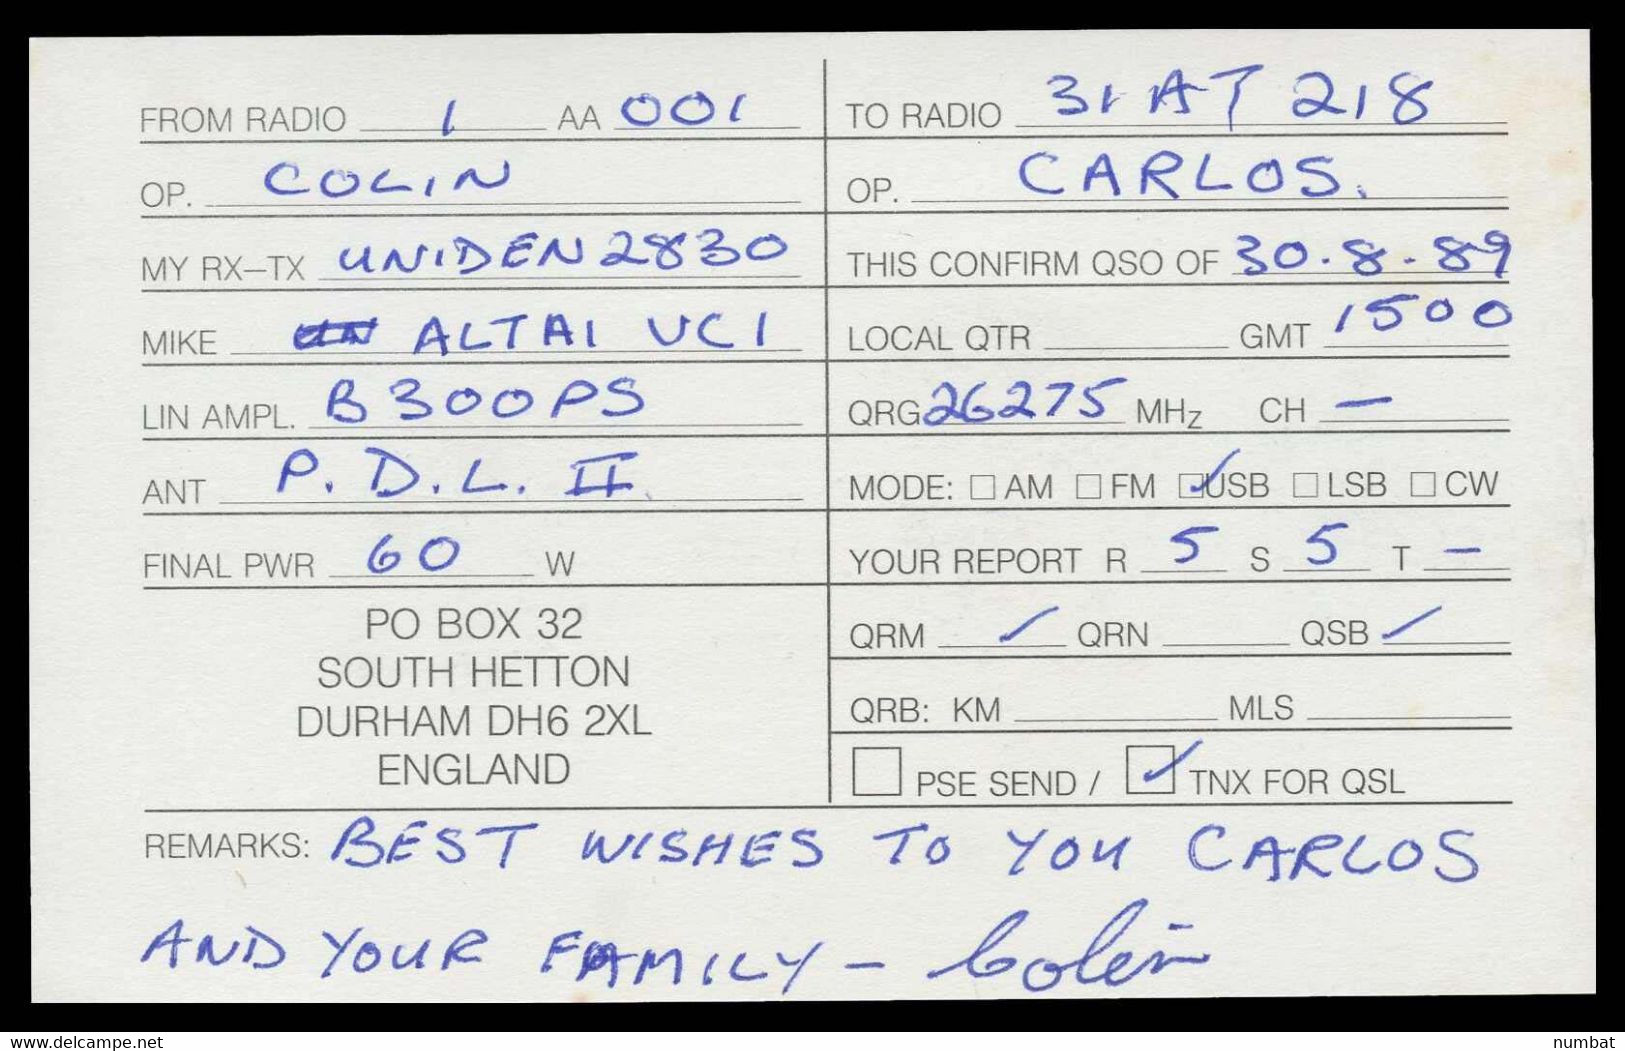 FROM RADIO 1 AA 001
OP. COLIN
MY RX–TX UNIDEN 2830
MIKE ALTAI UC1
LIN AMPL. B300PS
ANT P.D.L. II
FINAL PWR 60 W
PO BOX 32
SOUTH HETTON
DURHAM DH6 2XL
ENGLAND
TO RADIO 31 AT 218
OP. CARLOS.
THIS CONFIRM QSO OF 30.8.89
LOCAL QTR GMT 1500
QRG 26275 MHz CH —
MODE: ☐ AM ☐ FM ☑ USB ☐ LSB ☐ CW
YOUR REPORT R 5 S 5 T —
QRM ✓ QRN QSB ✓
QRB: KM MLS
☐ PSE SEND / ☑ TNX FOR QSL
REMARKS: BEST WISHES TO YOU CARLOS
AND YOUR FAMILY – Colin
www.delcampe.net numbat